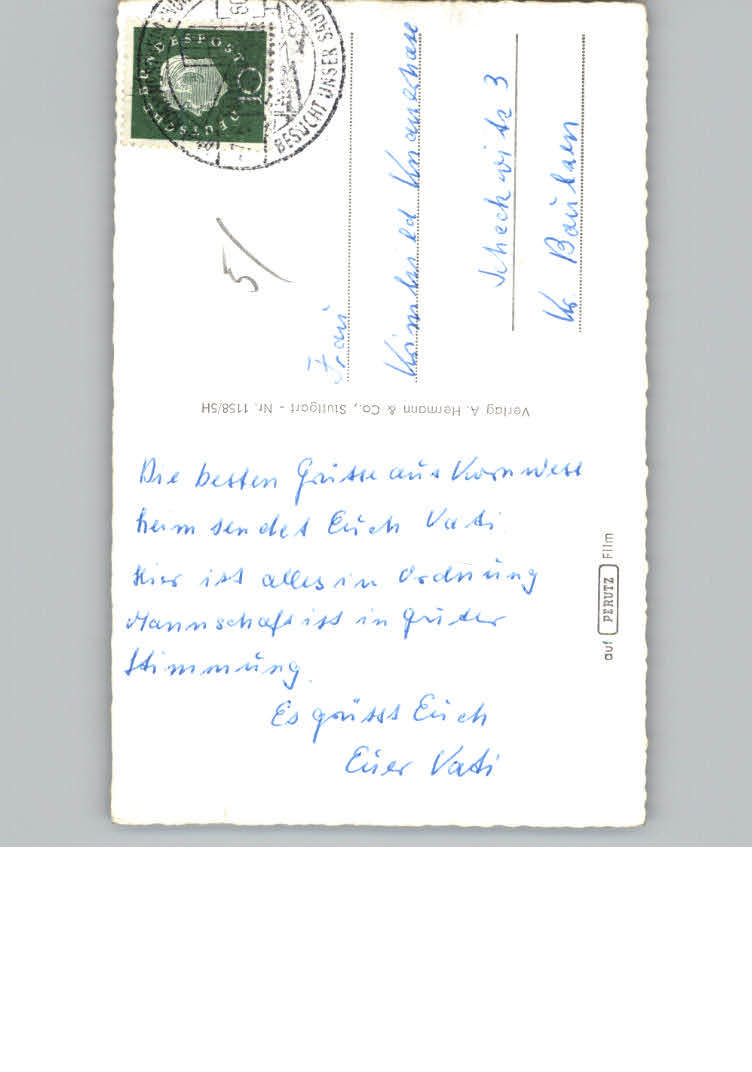 Die besten Grüsse aus Kornwest
heim sendet Euch Vati.
Hier ist alles in Ordnung
Mannschaft ist in guter
Stimmung.
Es grüsst Euch
Euer Vati
Frau
Scheckwitz 3
Kr. Bautzen
5/
Verlag A. Hermann & Co., Stuttgart - Nr. 1158/5H
auf PERUTZ Film
DEUTSCHE BUNDESPOST
10
BESUCHT UNSER